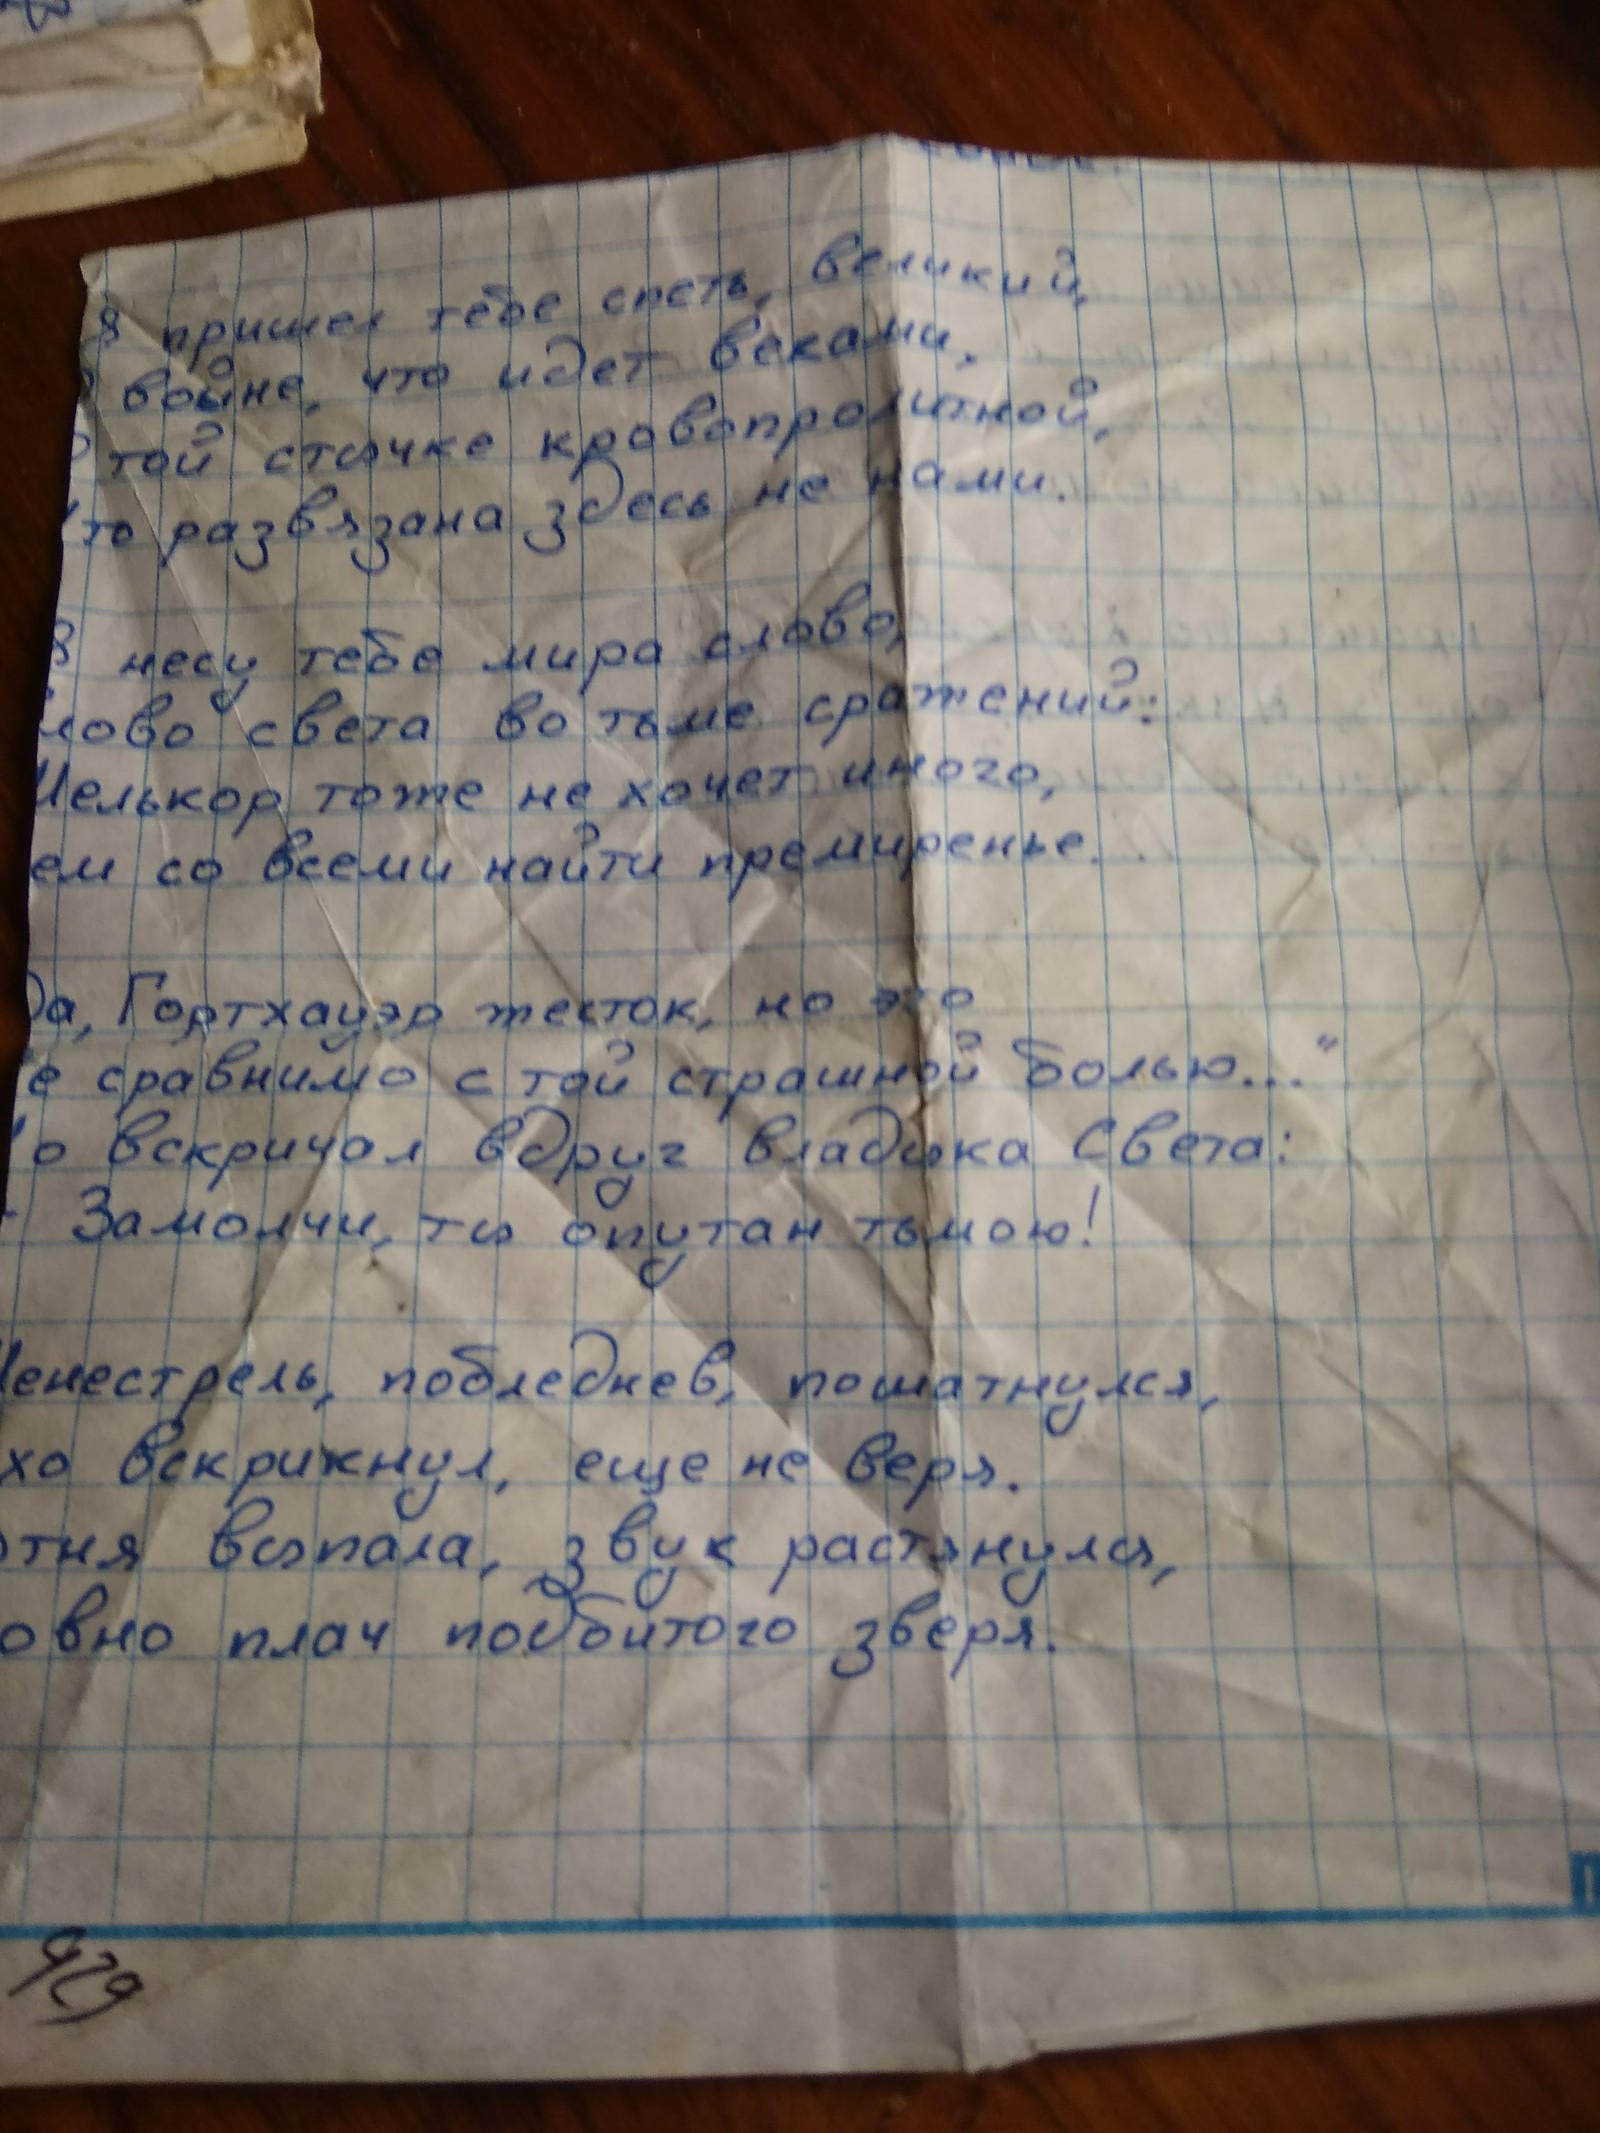 Я пришел тебе спеть, великий,
войне, что идет веками,
той стычке кровопролитной,
Что развязана здесь не нами.
Я несу тебе мира слово,
лово света во тьме сражений:
Мелькор тоже не хочет иного,
ем со всеми найти премиренье.
Да, Гортхауэр жесток, но это
е сравнимо с той страшной болью..."
о вскричал вдруг владыка Света:
- Замолчи, ты опутан тьмою!
Менестрель, побледнев, пошатнулся,
хо вскрикнул, еще не веря.
тня выпала, звук растянулся,
овно плач подбитого зверя.